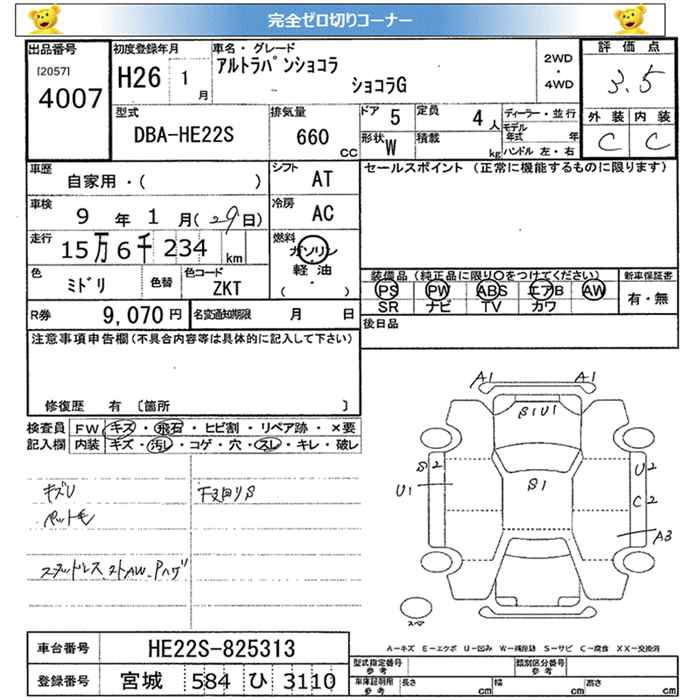 完全ゼロ切りコーナー
出品番号
[2057]
4007
初度登録年月
H26 1 月
車名・グレード
アルトラパンショコラ
ショコラG
2WD
・
4WD
評価点
3.5
外装 内装
C C
型式
DBA-HE22S
排気量
660 CC
ドア 5
定員 4 人
形状 W
積載 kg
ディーラー・並行
モデル年式 年
ハンドル 左・右
車歴
自家用・( )
シフト AT
セールスポイント (正常に機能するものに限ります)
車検
9 年 1 月(29日)
冷房 AC
走行
15万6千234 km
燃料
ガソリン
軽油
( ・ )
色
ミドリ
色替
色コード
ZKT
装備品 (純正品に限り○をつけてください)
PS PW ABS エアB AW
SR ナビ TV カワ
新車保証書
有・無
R券 9,070 円
名変通知期限 月 日
後日品
注意事項申告欄(不具合内容等は具体的に記入して下さい)
修復歴 有 〔箇所 〕
検査員
記入欄
FW キズ・飛石・ヒビ割・リペア跡・×要
内装 キズ・汚レ・コゲ・穴・スレ・キレ・破レ
キズU
ペット毛
下廻りS
A1 A1
S1U1
S2
U1
S1
U2
C2
A3
スマ
A-キズ E-エクボ U-凹み W-補修跡 S-サビ C-腐食 XX-交換済
車台番号 HE22S-825313
登録番号 宮城 584 ひ 3110
型式指定番号
参考
類別区分番号
参考
車庫証明用
参考
長さ cm
幅 cm
高さ cm